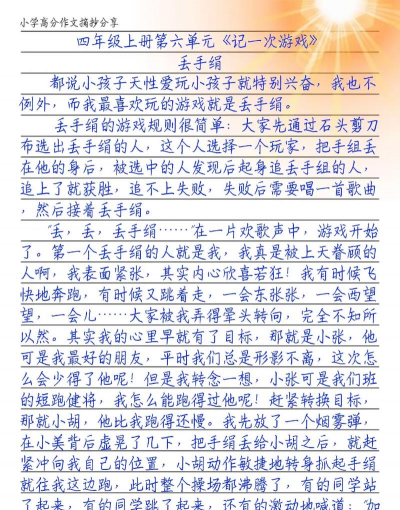 小学高分作文摘抄分享
四年级上册第六单元《记一次游戏》
丢手绢
都说小孩子天性爱玩小孩子就特别兴奋，我也不
例外，而我最喜欢玩的游戏就是丢手绢。
丢手绢的游戏规则很简单：大家先通过石头剪刀
布选出丢手绢的人，这个人选择一个玩家，把手组丢
在他的身后，被选中的人发现后起身追丢手组的人，
追上了就获胜，追不上失败，失败后需要唱一首歌曲
，然后接着丢手绢。
“丢，丢，丢手绢……”在一片欢歌声中，游戏开始
了。第一个丢手绢的人就是我，我真是被上天眷顾的
人啊，我表面紧张，其实内心欣喜若狂！我有时候飞
快地奔跑，有时候又跳着走，一会东张张，一会西望
望，一会儿……大家被我弄得晕头转向，完全不知所
以然。其实我的心里早就有了目标，那就是小张，他
可是我最好的朋友，平时我们总是形影不离，这次怎
么会少得了他呢！但是我转念一想，小张可是我们班
的短跑健将，我怎么能跑得过他呢！赶紧转换目标，
那就小胡，他比我跑得还慢。我先放了一个烟雾弹，
在小美背后虚晃了几下，把手绢丢给小胡之后，就赶
紧冲向我自己的位置，小胡动作敏捷地转身抓起手绢
就往我这边跑，此时整个操场都沸腾了，有的同学站
了起来，有的同学跳了起来，还有的激动地喊道：“加